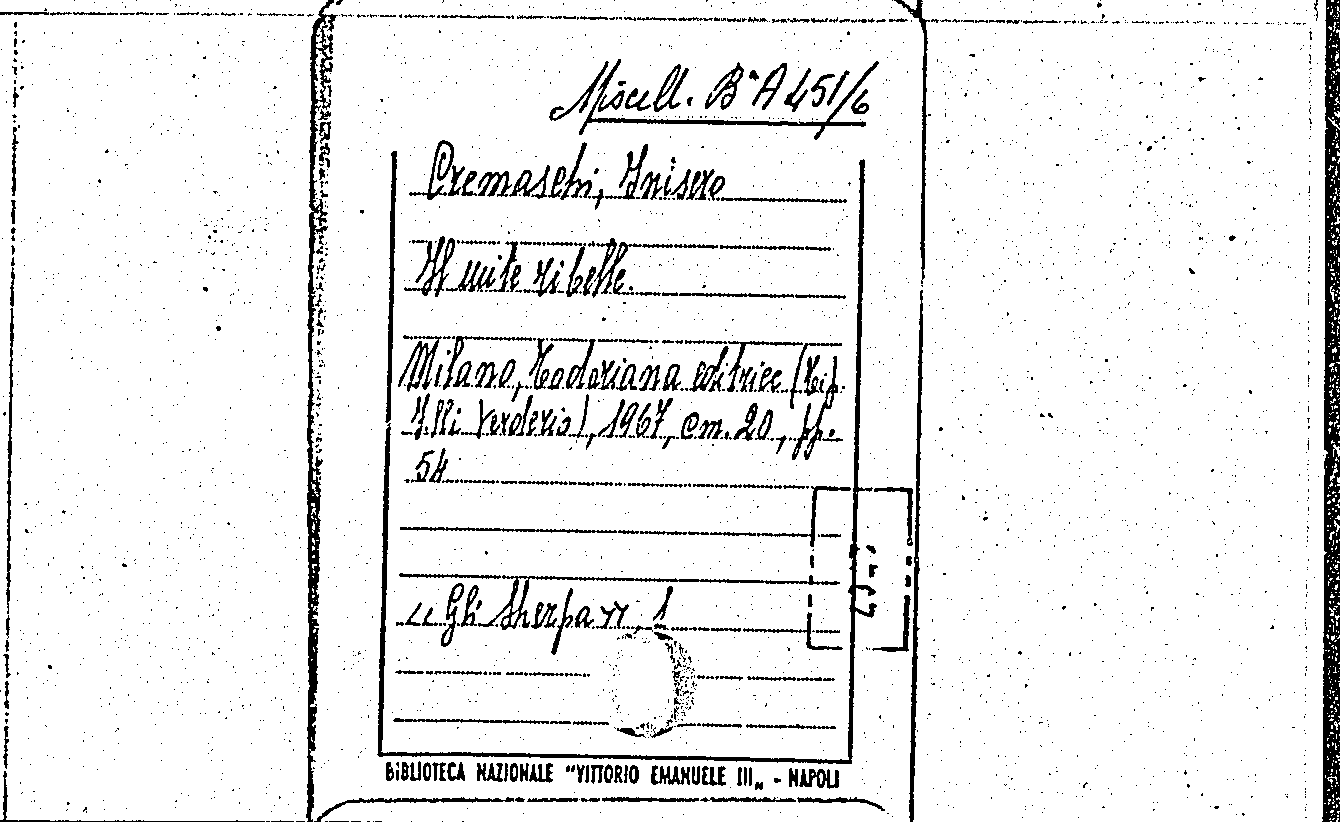 Miscell. Bª A 451/6
Cremaschi, Inisero
Il mite ribelle.
Milano, Todariana editrice (Tip.
F.lli Verderio), 1967, cm. 20, pp.
54
"Gli Sherpa", 1
BIBLIOTECA NAZIONALE "VITTORIO EMANUELE III„ - NAPOLI